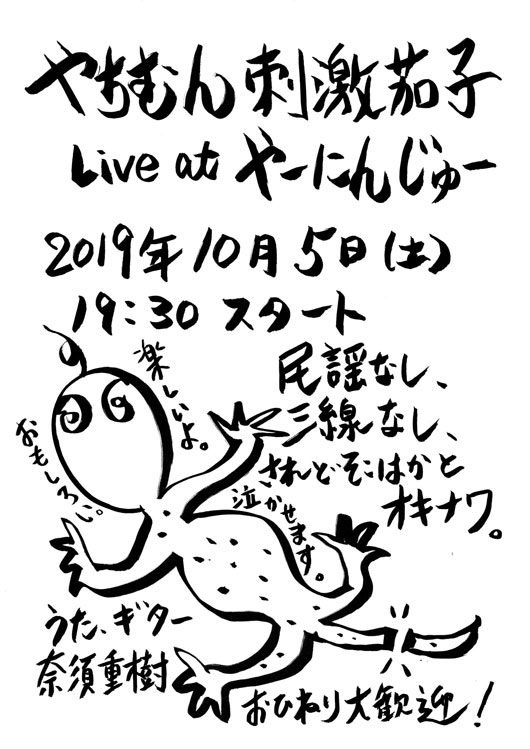 やちむん刺激茄子
Live at やーにんじゅー
2019年10月5日(土)
19:30 スタート
楽しいよ。
おもしろい。
民謡なし、
三線なし、
されどそこはかと
オキナワ。
泣かせます。
うた、ギター
奈須重樹
おひねり大歓迎！